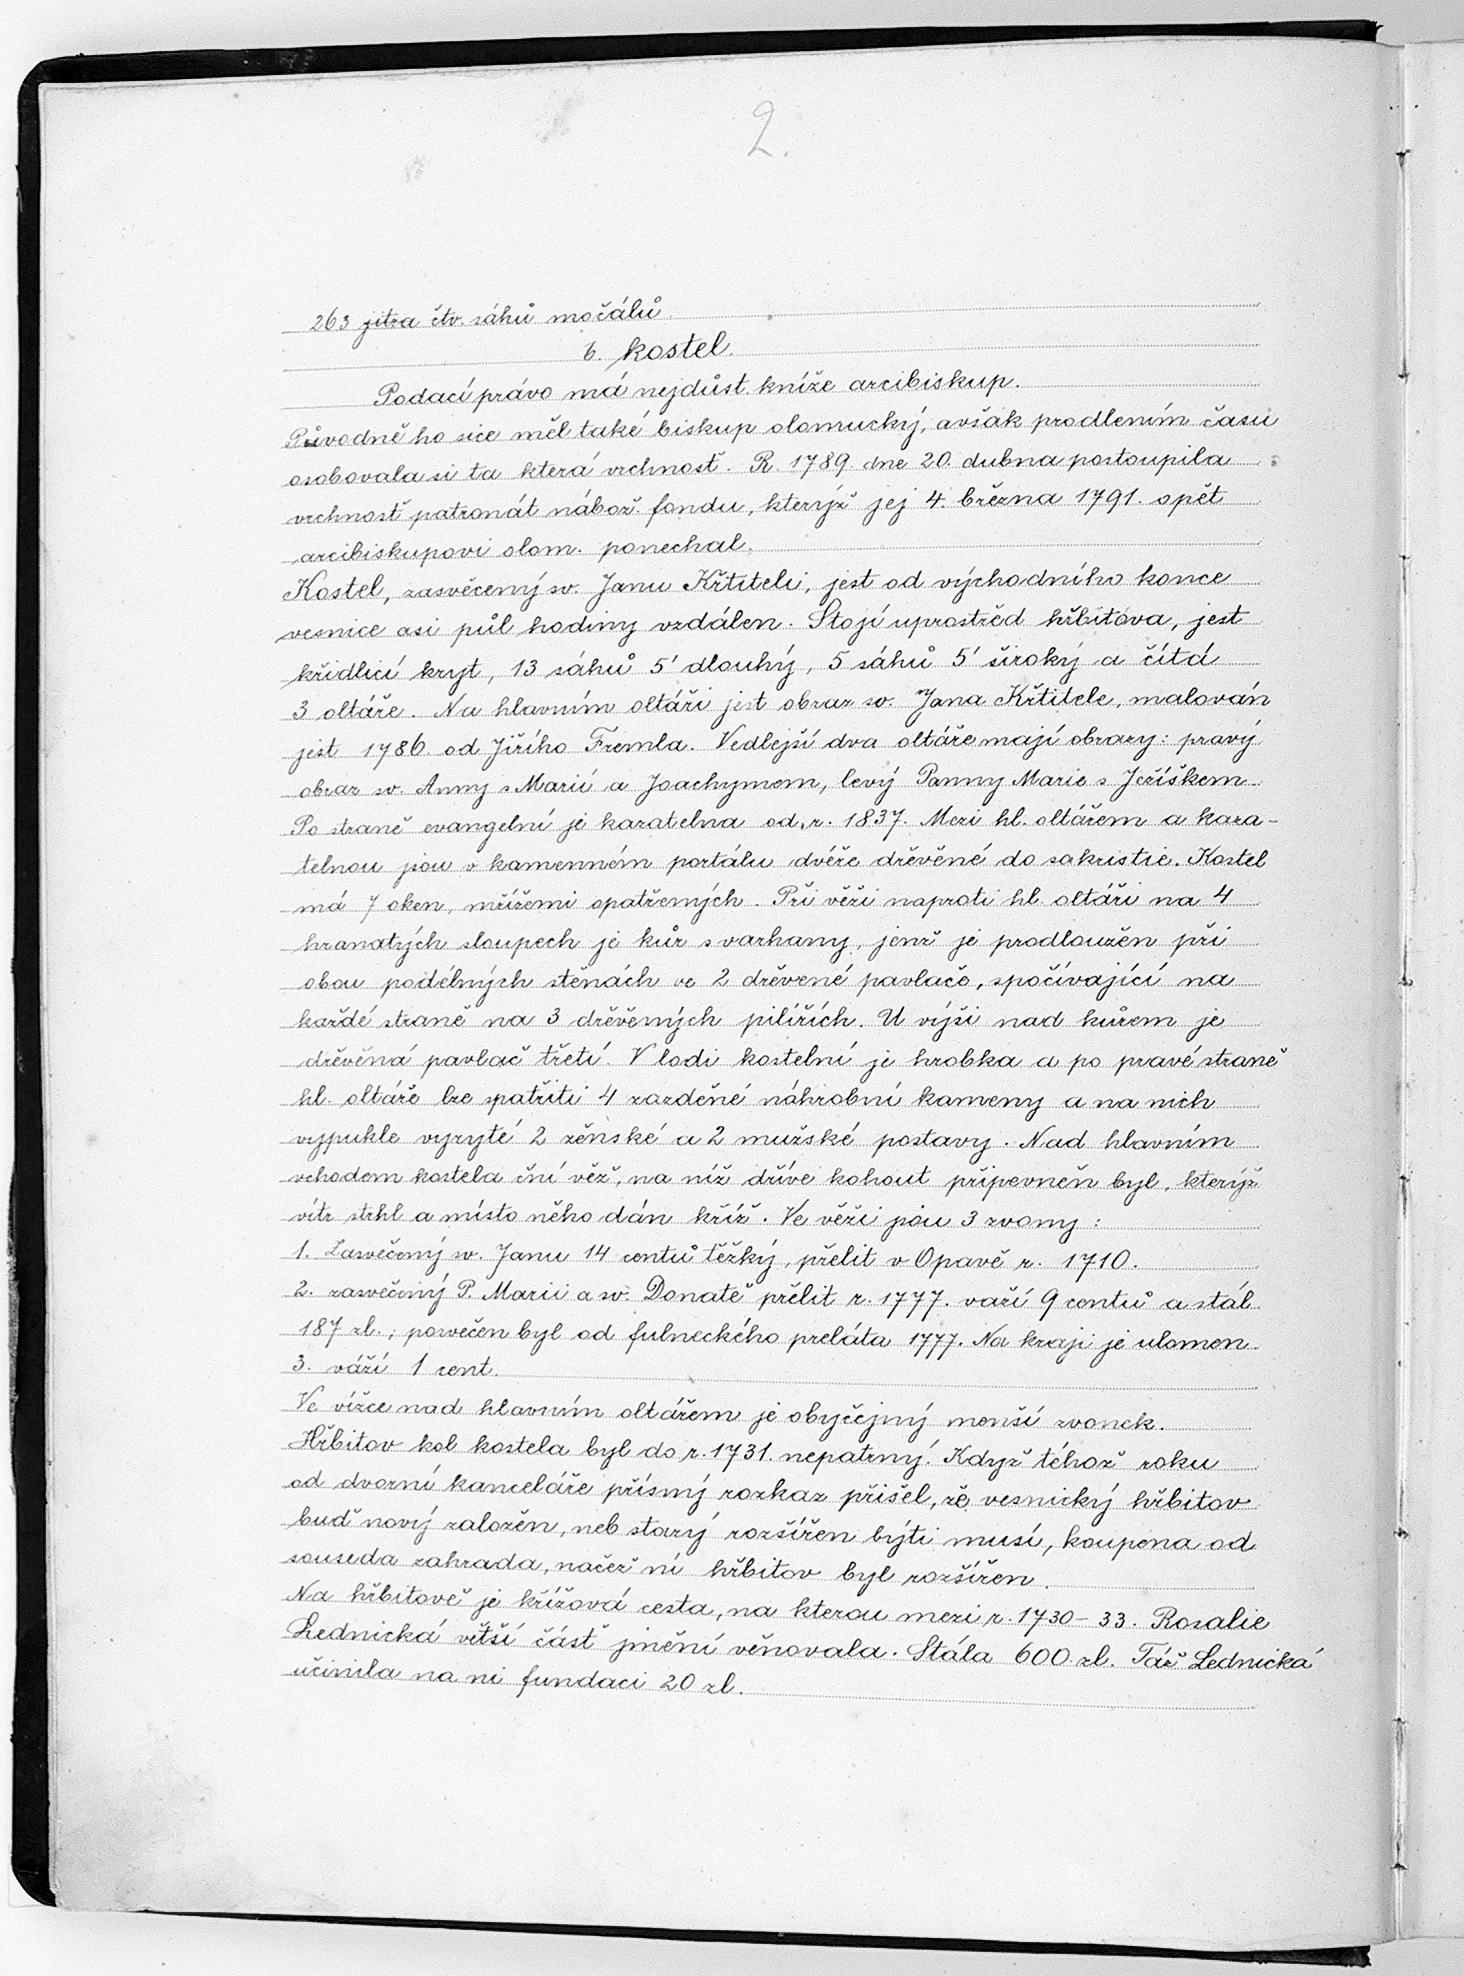 2.
263 jitra čtv. sáhů močálů.
b. kostel.
Podací právo má nejdůst. kníže arcibiskup.
Původně ho sice měl také biskup olomucký, avšak prodlením času
osobovala si ta která vrchnosť. R. 1789. dne 20. dubna postoupila
vrchnosť patronát nábož. fondu, kterýž jej 4. března 1791. opět
arcibiskupovi olom. ponechal.
Kostel, zasvěcený sv. Janu Křtiteli, jest od východního konce
vesnice asi půl hodiny vzdálen. Stojí uprostřed hřbitova, jest
křidlicí kryt, 13 sáhů 5' dlouhý, 5 sáhů 5' široký a čítá
3 oltáře. Na hlavním oltáři jest obraz sv. Jana Křtitele, malován
jest 1786 od Jiřího Fremla. Vedlejší dva oltáře mají obrazy: pravý
obraz sv. Anny s Marií a Joachymem, levý Panny Marie s Ježíškem.
Po straně evangelní je kazatelna od r. 1837. Mezi hl. oltářem a kaza-
telnou jsou v kamenném portálu dvéře dřevěné do sakristie. Kostel
má 7 oken, mřížemi opatřených. Při věži naproti hl. oltáři na 4
hranatých sloupech je kůr s varhany, jenž je prodloužen při
obou podélných stěnách ve 2 dřevené pavlače, spočívající na
každé straně na 3 dřěvěných pilířích. U výši nad kůrem je
dřěvěná pavlač třetí. V lodi kostelní je hrobka a po pravé straně
hl. oltáře lze spatřiti 4 zazděné náhrobní kameny a na nich
vypukle vyryté 2 ženské a 2 mužské postavy. Nad hlavním
vchodem kostela ční věž, na níž dříve kohout připevněn byl, kterýž
vítr strhl a místo něho dán kříž. Ve věži jsou 3 zvony:
1. Zasvěcený sv. Janu 14 centů těžký, přelit v Opavě r. 1710.
2. zasvěcený P. Marii a sv. Donatě přelit r. 1777. važí 9 centů a stál
187 zl.; posvěcen byl od fulneckého preláta 1777. Na kraji je ulomen.
3. váží 1 cent.
Ve vížce nad hlavním oltářem je obyčejný menší zvonek.
Hřbitov kol kostela byl do r. 1731. nepatrný. Když téhož roku
od dvorní kanceláře přísný rozkaz přišel, že vesnický hřbitov
buď nový založen, neb starý rozšířen býti musí, koupena od
souseda zahrada, načež ní hřbitov byl rozšířen.
Na hřbitově je křížová cesta, na kterou mezi r. 1730-33. Rosalie
Lednická větší část jmění věnovala. Stála 600 zl. Táž Lednická
učinila na ni fundaci 20 zl.